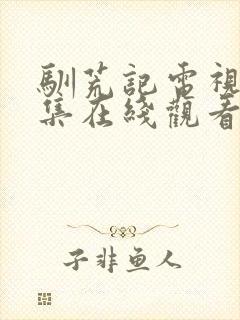 馴荒記電視
集在綫觀看
子非鱼人